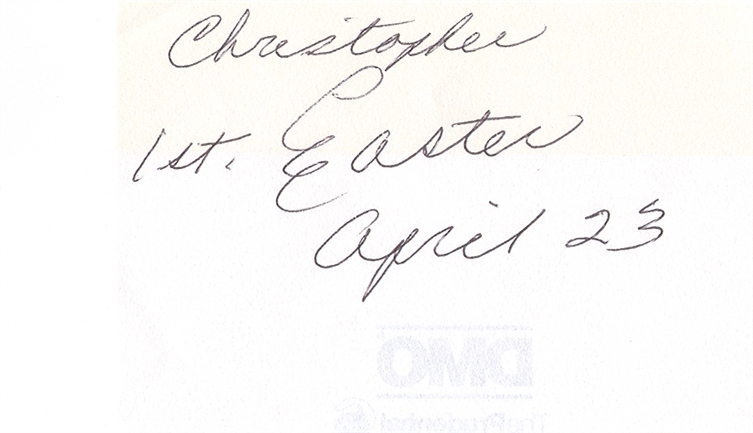 Christopher
1st. Easter
April 23
DMO
The Prudential